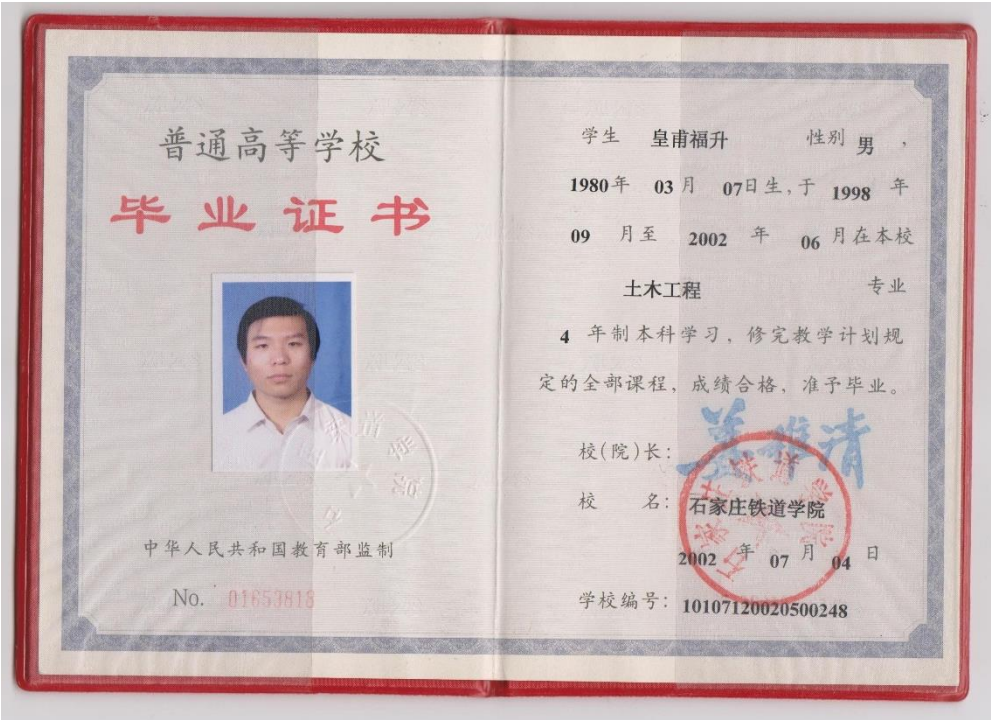 普通高等学校
毕业证书
中华人民共和国教育部监制
No. 01653813
学生 皇甫福升 性别 男，
1980年 03月 07日生，于 1998 年
09 月至 2002 年 06 月在本校
土木工程 专业
4 年制本科学习，修完教学计划规
定的全部课程，成绩合格，准予毕业。
校(院)长：
校 名：石家庄铁道学院
2002 年 07 月 04 日
学校编号：10107120020500248
石家庄铁道学院